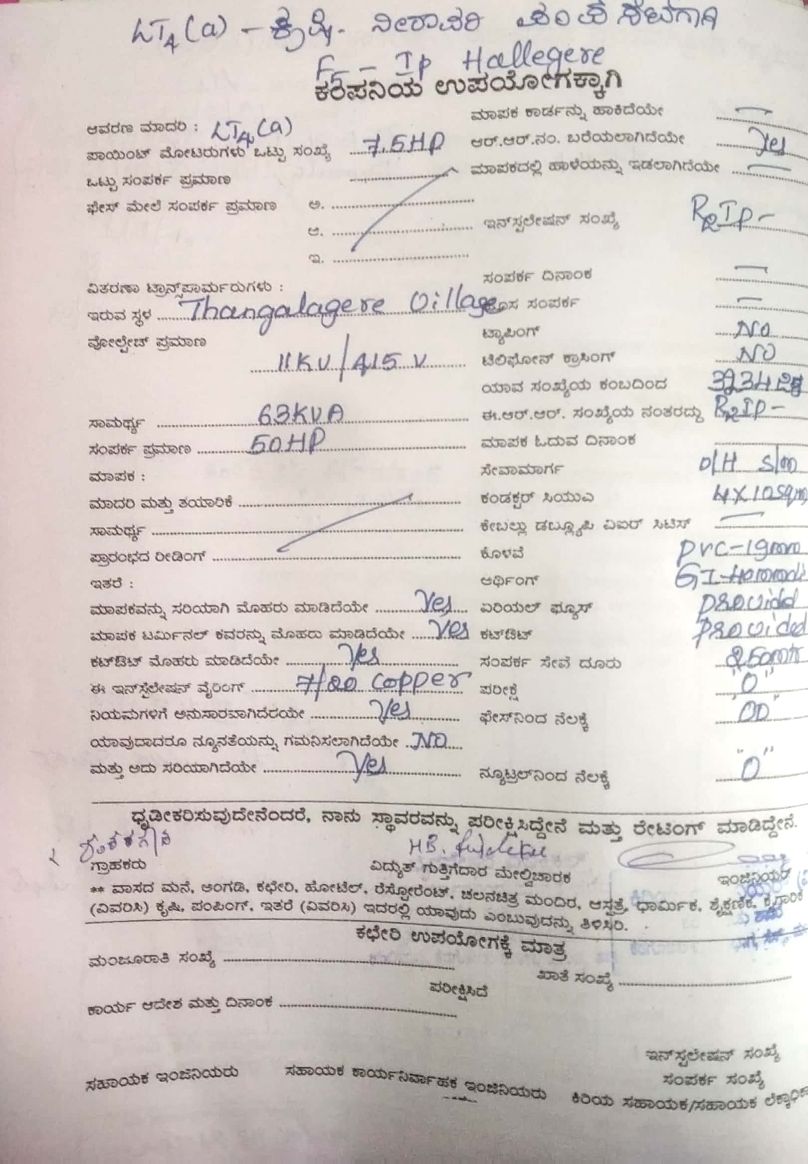 LT4(a) - ಕೃಷಿ. ನೀರಾವರಿ ಪಂಪ್
F5 - Ip Hallegere
ಕಂಪನಿಯ ಉಪಯೋಗಕ್ಕಾಗಿ
ಆವರಣ ಮಾದರಿ : LT4(a)
ಪಾಯಿಂಟ್ ಮೋಟರುಗಳು ಒಟ್ಟು ಸಂಖ್ಯೆ 7.5HP
ಒಟ್ಟು ಸಂಪರ್ಕ ಪ್ರಮಾಣ
ಫೇಸ್ ಮೇಲೆ ಸಂಪರ್ಕ ಪ್ರಮಾಣ ಅ.
ಆ.
ಇ.
ವಿತರಣಾ ಟ್ರಾನ್ಸ್‌ಫಾರ್ಮರುಗಳು :
ಇರುವ ಸ್ಥಳ Thangalagere Village
ವೋಲ್ಟೇಜ್ ಪ್ರಮಾಣ
11KV/415 V
ಸಾಮರ್ಥ್ಯ 63KVA
ಸಂಪರ್ಕ ಪ್ರಮಾಣ 50HP
ಮಾಪಕ :
ಮಾದರಿ ಮತ್ತು ತಯಾರಿಕೆ
ಸಾಮರ್ಥ್ಯ
ಪ್ರಾರಂಭದ ರೀಡಿಂಗ್
ಇತರೆ :
ಮಾಪಕವನ್ನು ಸರಿಯಾಗಿ ಮೊಹರು ಮಾಡಿದೆಯೇ Yes
ಮಾಪಕ ಟರ್ಮಿನಲ್ ಕವರನ್ನು ಮೊಹರು ಮಾಡಿದೆಯೇ Yes
ಕಟ್‌ಔಟ್ ಮೊಹರು ಮಾಡಿದೆಯೇ Yes
ಈ ಇನ್‌ಸ್ಟಲೇಷನ್ ವೈರಿಂಗ್ 7/20 copper
ನಿಯಮಗಳಿಗೆ ಅನುಸಾರವಾಗಿದೆರಯೇ Yes
ಯಾವುದಾದರೂ ನ್ಯೂನತೆಯನ್ನು ಗಮನಿಸಲಾಗಿದೆಯೇ NO
ಮತ್ತು ಅದು ಸರಿಯಾಗಿದೆಯೇ Yes
ಮಾಪಕ ಕಾರ್ಡನ್ನು ಹಾಕಿದೆಯೇ
ಆರ್.ಆರ್.ನಂ. ಬರೆಯಲಾಗಿದೆಯೇ Yes
ಮಾಪಕದಲ್ಲಿ ಹಾಳೆಯನ್ನು ಇಡಲಾಗಿದೆಯೇ
ಇನ್‌ಸ್ಟಲೇಷನ್ ಸಂಖ್ಯೆ R2Ip-
ಸಂಪರ್ಕ ದಿನಾಂಕ
ಹೊಸ ಸಂಪರ್ಕ
ಟ್ಯಾಪಿಂಗ್ NO
ಟೆಲಿಫೋನ್ ಕ್ರಾಸಿಂಗ್ NO
ಯಾವ ಸಂಖ್ಯೆಯ ಕಂಬದಿಂದ
ಈ.ಆರ್.ಆರ್. ಸಂಖ್ಯೆಯ ನಂತರದ್ದು R2Ip-
ಮಾಪಕ ಓದುವ ದಿನಾಂಕ
ಸೇವಾಮಾರ್ಗ O/H S/m
ಕಂಡಕ್ಟರ್ ಸಿಯುಎ 4x10sqm
ಕೇಬಲ್ಲು ಡಬ್ಲ್ಯೂಪಿ ಎಐರ್ ಸಿಟಿಸ್
ಕೊಳವೆ PVC-19mm
ಅರ್ಥಿಂಗ್
ಏರಿಯಲ್ ಫ್ಯೂಸ್ provided
ಕಟ್‌ಔಟ್ provided
ಸಂಪರ್ಕ ಸೇವೆ ದೂರು 250mt
ಪರೀಕ್ಷೆ "0"
ಫೇಸ್‌ನಿಂದ ನೆಲಕ್ಕೆ
ನ್ಯೂಟ್ರಲ್‌ನಿಂದ ನೆಲಕ್ಕೆ "0"
ಧೃಡೀಕರಿಸುವುದೇನೆಂದರೆ, ನಾನು ಸ್ಥಾವರವನ್ನು ಪರೀಕ್ಷಿಸಿದ್ದೇನೆ ಮತ್ತು ರೇಟಿಂಗ್ ಮಾಡಿದ್ದೇನೆ.
ಗ್ರಾಹಕರು ವಿದ್ಯುತ್ ಗುತ್ತಿಗೆದಾರ ಮೇಲ್ವಿಚಾರಕ ಇಂಜಿನಿಯರ್
** ವಾಸದ ಮನೆ, ಅಂಗಡಿ, ಕಛೇರಿ, ಹೋಟೆಲ್, ರೆಸ್ಟೋರೆಂಟ್, ಚಲನಚಿತ್ರ ಮಂದಿರ, ಆಸ್ಪತ್ರೆ, ಧಾರ್ಮಿಕ, ಶೈಕ್ಷಣಿಕ, ಕೈಗಾರಿಕೆ
(ವಿವರಿಸಿ) ಕೃಷಿ, ಪಂಪಿಂಗ್, ಇತರೆ (ವಿವರಿಸಿ) ಇದರಲ್ಲಿ ಯಾವುದು ಎಂಬುವುದನ್ನು ತಿಳಿಸಿರಿ.
ಕಛೇರಿ ಉಪಯೋಗಕ್ಕೆ ಮಾತ್ರ
ಮಂಜೂರಾತಿ ಸಂಖ್ಯೆ ಖಾತೆ ಸಂಖ್ಯೆ
ಪರೀಕ್ಷಿಸಿದೆ
ಕಾರ್ಯ ಆದೇಶ ಮತ್ತು ದಿನಾಂಕ
ಇನ್‌ಸ್ಟಲೇಷನ್ ಸಂಖ್ಯೆ
ಸಂಪರ್ಕ ಸಂಖ್ಯೆ
ಸಹಾಯಕ ಇಂಜಿನಿಯರು ಸಹಾಯಕ ಕಾರ್ಯನಿರ್ವಾಹಕ ಇಂಜಿನಿಯರು ಕಿರಿಯ ಸಹಾಯಕ/ಸಹಾಯಕ